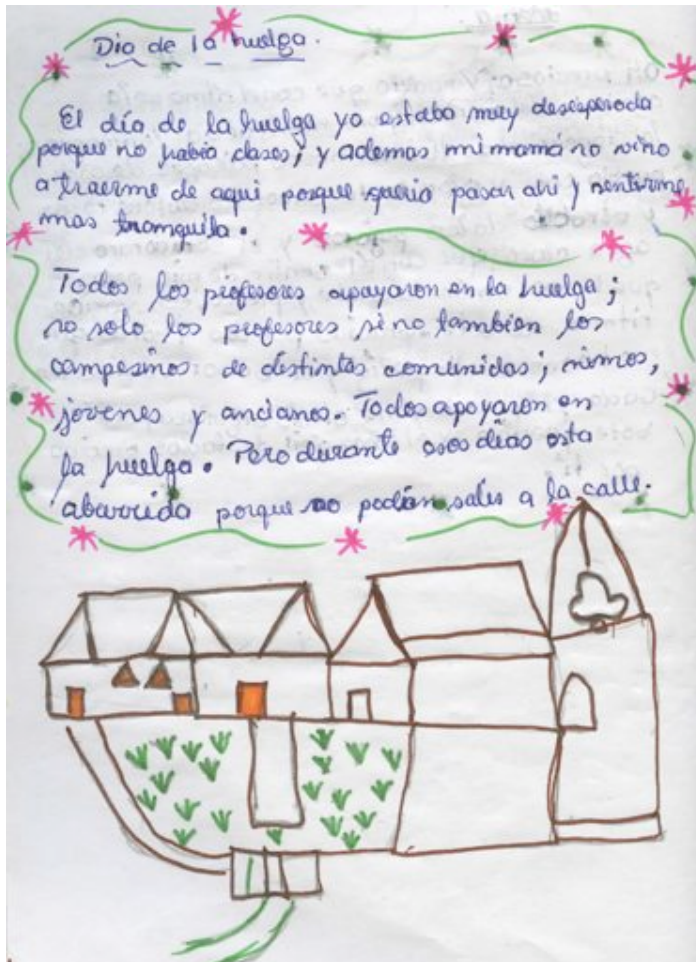 Dia de la huelga.
El día de la huelga yo estaba muy desesperada
porque no había clases; y ademas mi mamá no vino
a traerme de aqui porque queria pasar ahi y sentirme
mas tranquila.
Todos los profesores apoyaron en la huelga;
no solo los profesores sino tambien los
campesinos de distintas comunidas; ninños,
jovenes y ancianos. Todos apoyaron en
la huelga. Pero durante esos días esta
aburrida porque no podían salir a la calle.